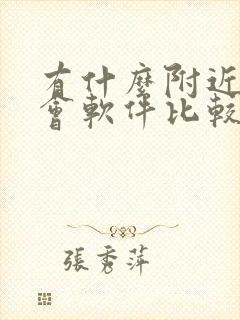 有什麼附近
會軟件比較
張秀萍